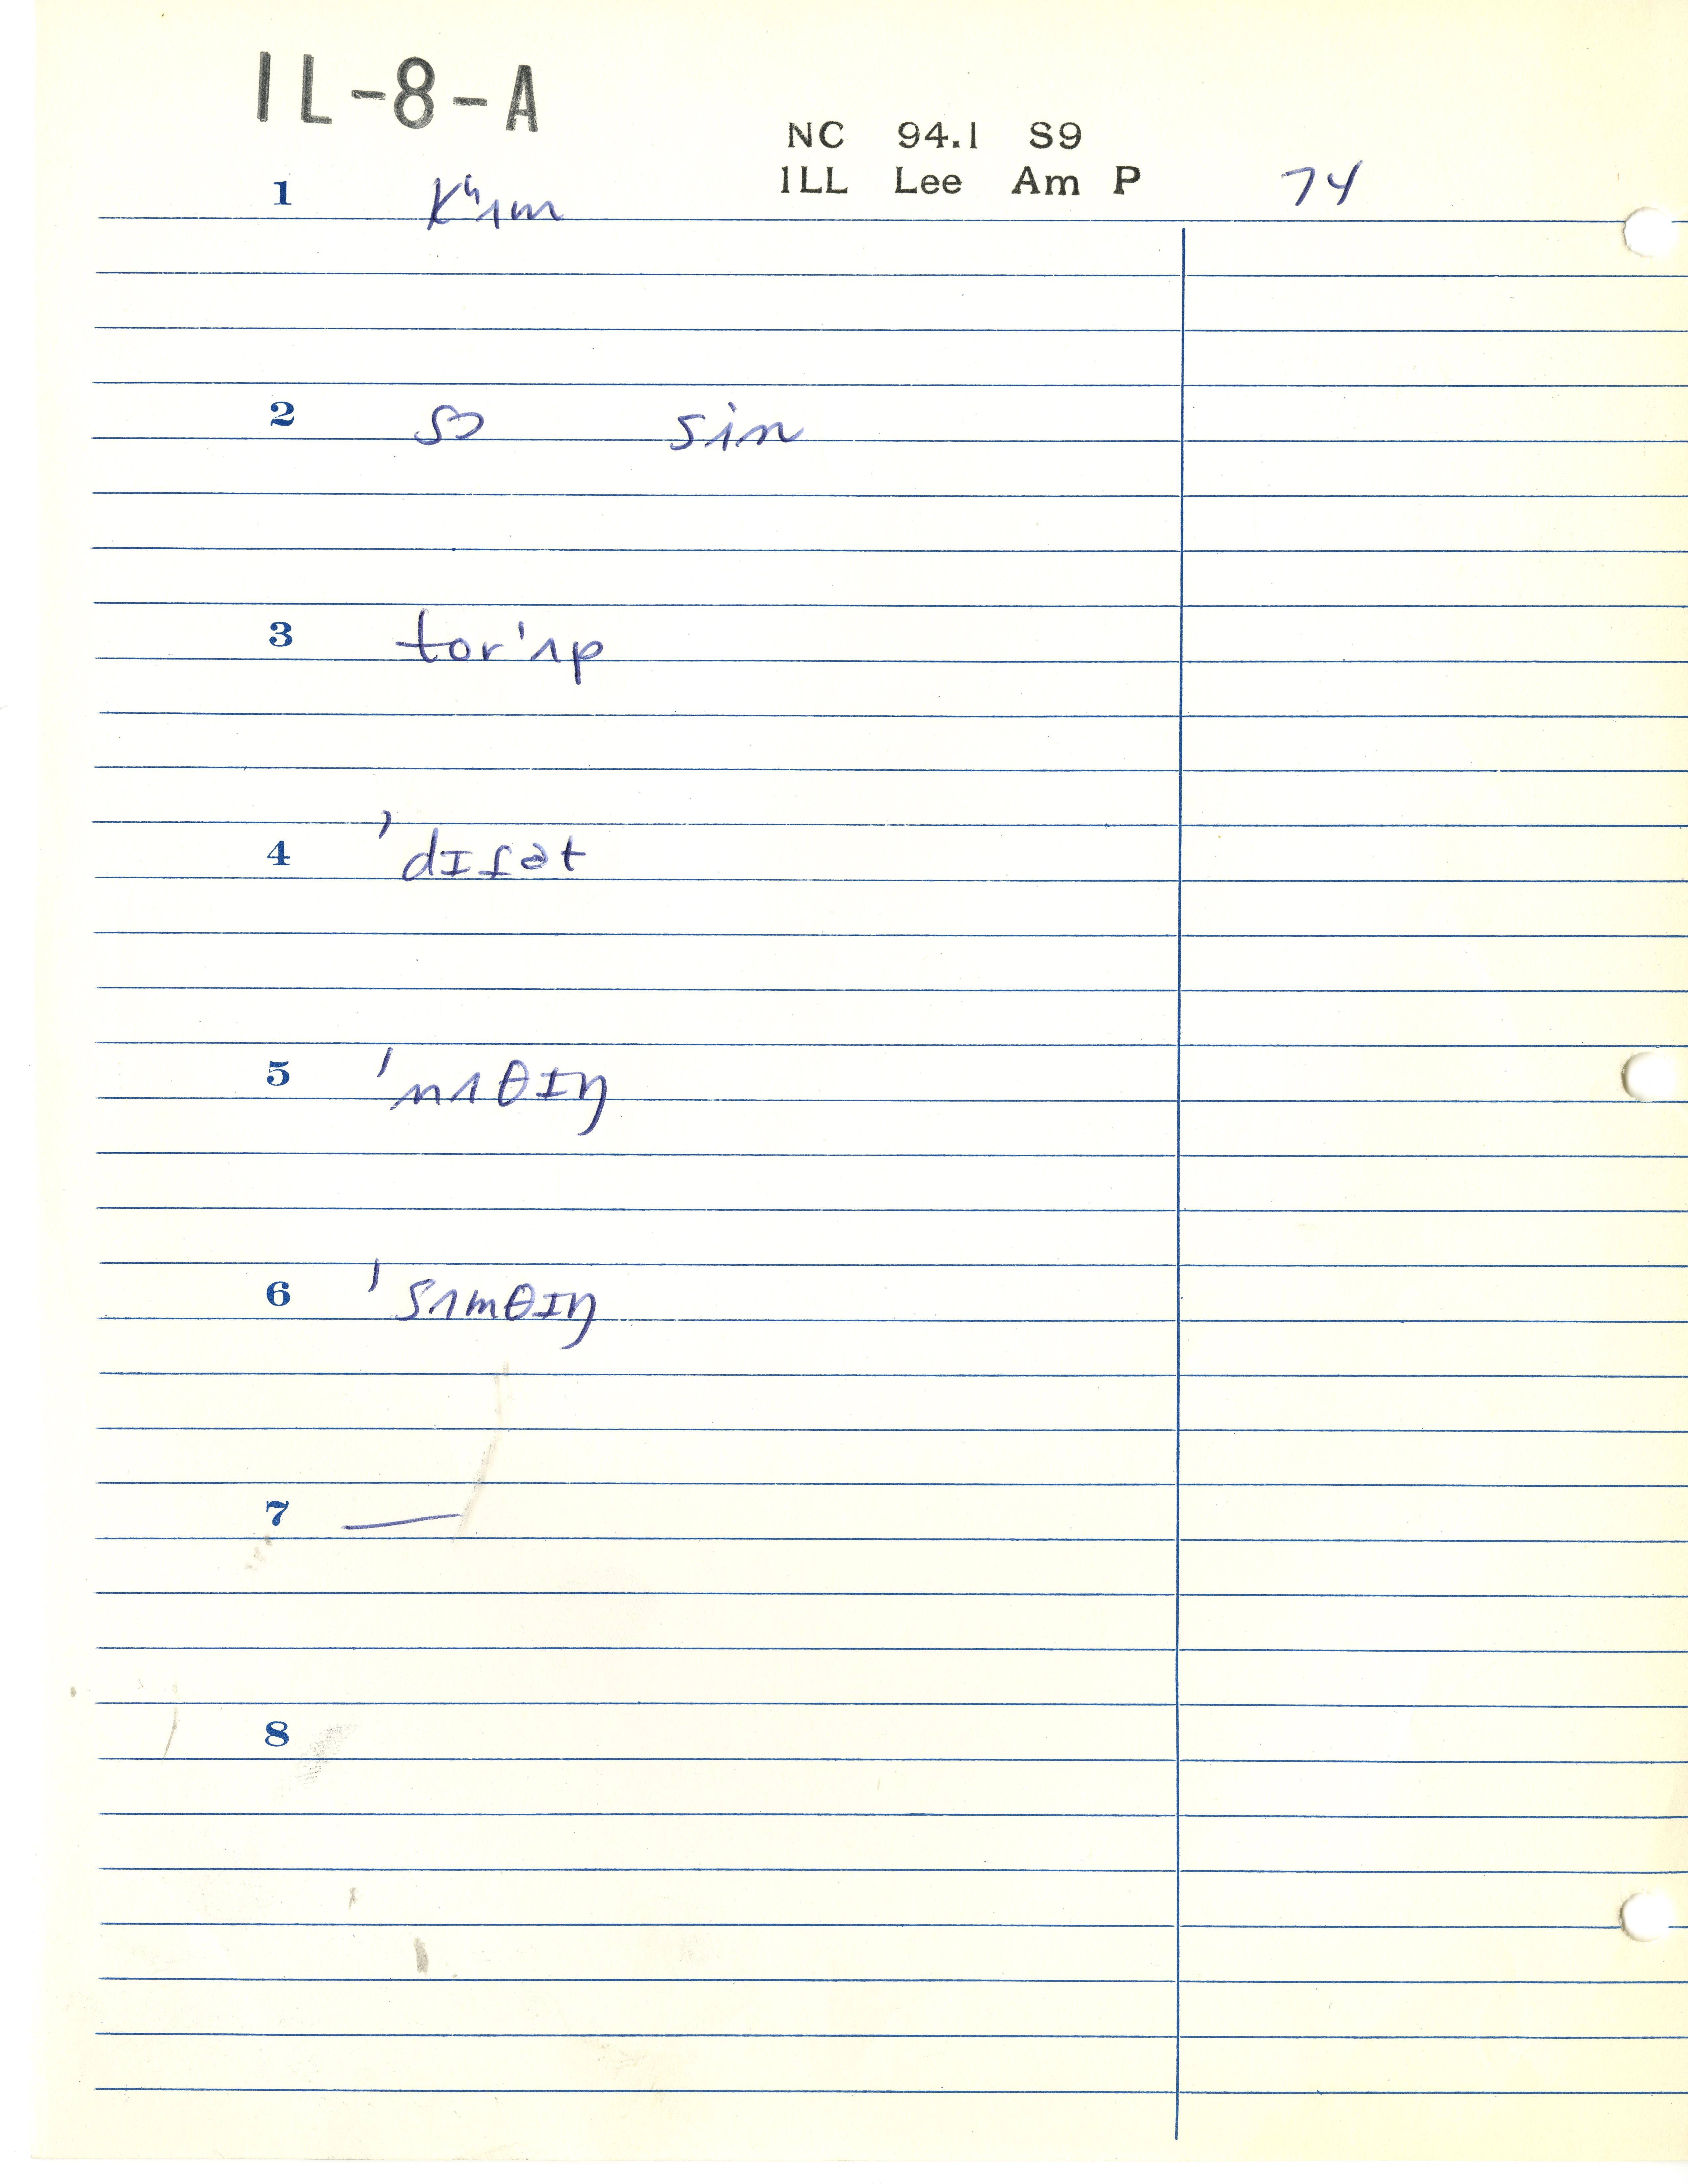 IL-8-A
NC 94.1 S9
ILL Lee Am P 74
1 kʰʌm
2 sɔ sin
3 tor'ʌp
4 'dɪʃət
5 'nʌθɪŋ
6 'sʌmθɪŋ
7 —
8